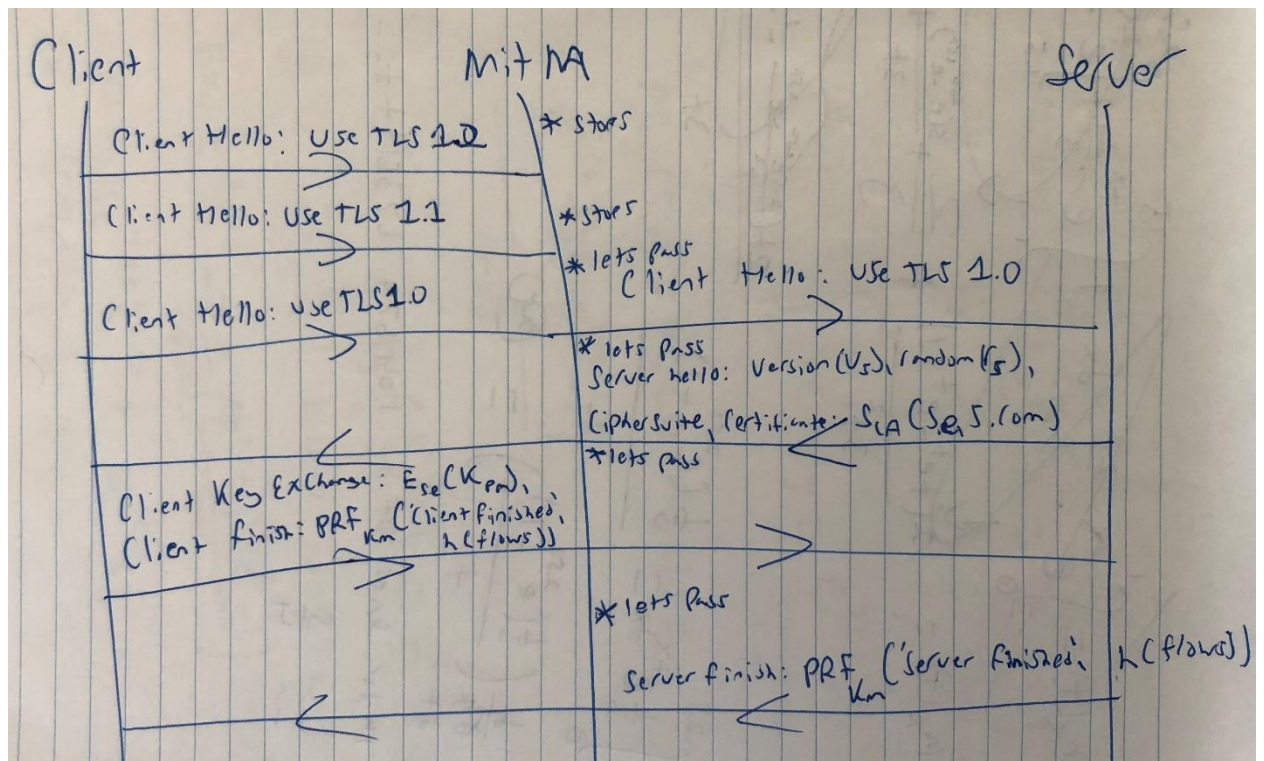 Client MitM Server
Client Hello: Use TLS 1.2
* stops
Client Hello: Use TLS 1.1
* stops
* lets pass
Client Hello: Use TLS 1.0
Client Hello: Use TLS 1.0
* lets pass
Server hello: version(Vs), random(rs),
Ciphersuite, Certificate: SCA(S.e, S.com)
* lets pass
Client Key Exchange: ESe(Kpm),
Client finish: PRFKm('Client finished',
h(flows))
* lets pass
Server finish: PRFKm('Server finished', h(flows))